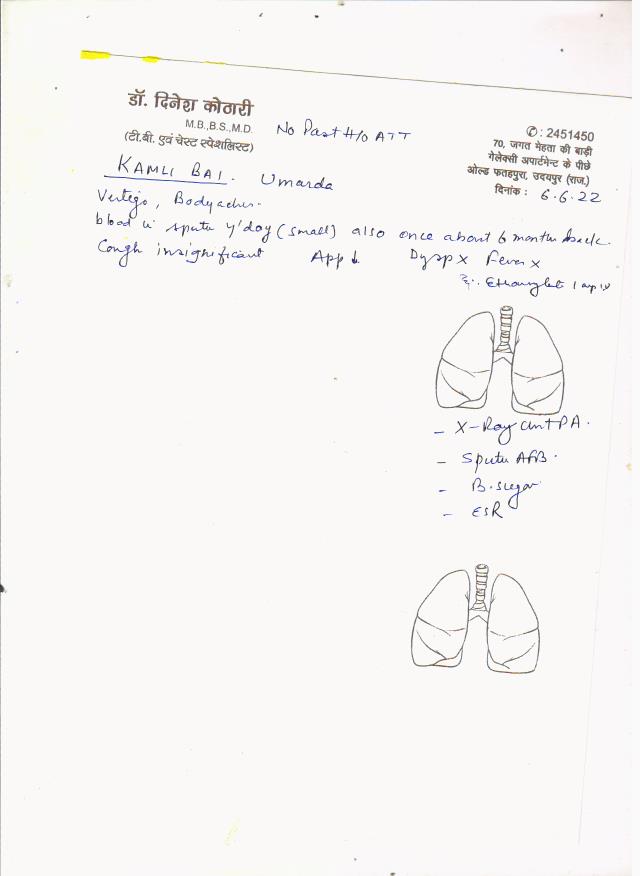 डॉ. दिनेश कोठारी
M.B.,B.S.,M.D.
(टी.बी. एवं चेस्ट स्पेशलिस्ट)
No Past H/o ATT
✆: 2451450
70, जगत मेहता की बाड़ी
गेलेक्सी अपार्टमेन्ट के पीछे
ओल्ड फतहपुरा, उदयपुर (राज.)
दिनांक : 6.6.22
KAMLI BAI. Umarda
Vertigo, Bodyaches.
blood in sputu y'day (small) also once about 6 month back.
Cough insignificant App ↓ Dysp x Fever x
- X-Ray Chest PA.
- Sputu AFB.
- B. sugar
- ESR